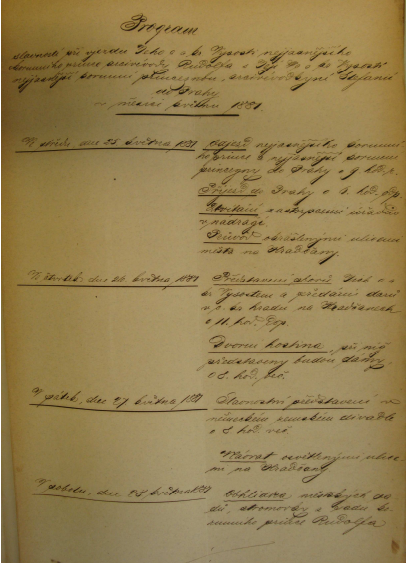 Program
slavností při vjezdu Jeho c. a k. Výsosti, nejjasnějšího
korunního prince arcivévody Rudolfa a Její c. a k. Výsosti
nejjasnější korunní princezny, arcivévodkyně Stefanie
do Prahy
v měsíci květnu 1881.
V středu, dne 25. května, 1881
nejjasnějšího korunní
ho prince a nejjasnější korunní
princezny do Prahy o hod.
Příjezd do Prahy o 4. hod. odp.
Uvítání zastupenci úřadův
v nádraží.
Průvod okrášlenými ulicemi
města na Hradčany.
Ve čtvrtek, dne 26. května, 1881
Představení Jich c. a
k. Výsostem a předání darů
v c. k. hradu na Hradčanech
o 11. hod. dop.
Dvorní hostina, při níž
představeny budou dámy,
o 8. hod. več.
V pátek, dne 27. května, 1881
Slavnostní představení v
německém zemském divadle
o 7. hod. več.
Návrat osvětlenými ulice
mi na Hradčany.
V sobotu, dne 28. května 1881
Obhlídka městských sa
dů, stromovky a sadu ko
runního prince Rudolfa